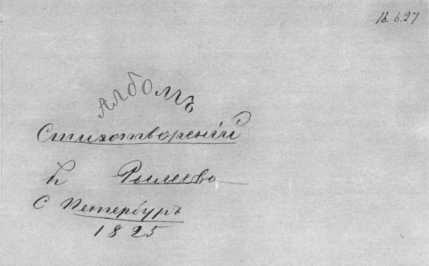 18.6.27
Альбомъ
Стихотвореній
К Рылеева
С Петербургъ
1825